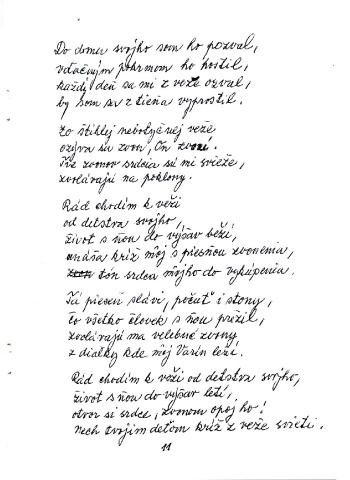 Do domu svojho som ho pozval,
vďačným pokrmom ho hostil,
každý deň sa mi z veže ozval,
by som sa z tieňa vyprostil.
Zo štíhlej nebotyčnej veže
ozýva sa zvon, On zvoní.
Tie zvonov srdcia sú mi svieže,
zvolávajú na poklony.
Rád chodím k veži
od detstva svojho,
život s ňou do výšav beží,
unáša kríž môj s piesňou zvonenia,
tón srdca môjho do vykúpenia.
Tá pieseň slávi, počuť i stony,
čo všetko človek s ňou prežil,
zvolávajú ma velebné zvony
z diaľky kde môj Varín leží.
Rád chodím k veži od detstva svojho,
život s ňou do výšav letí,
otvor si srdce, zvonom opoj ho!
Nech tvojim deťom kríž z veže svieti.
11